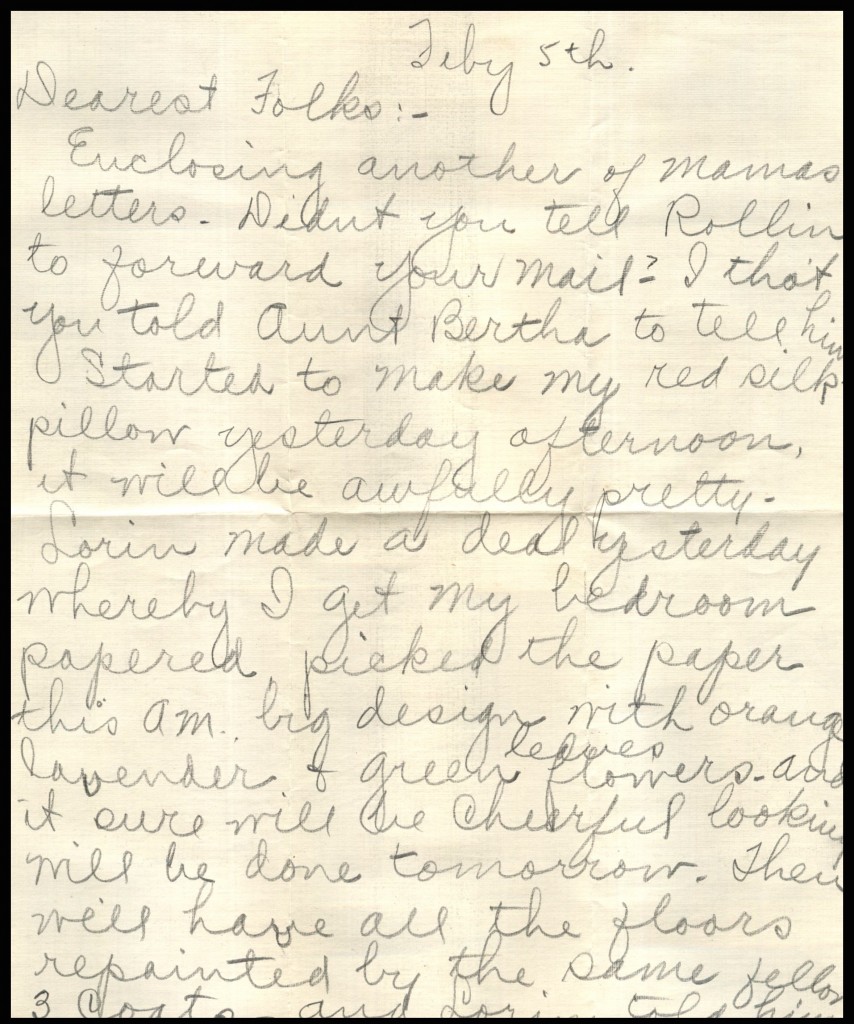 Feby 5th.
Dearest Folks:-
Enclosing another of mamas
letters. Didnt you tell Rollin
to forward your mail? I thot
you told Aunt Bertha to tell him
Started to make my red silk
pillow yesterday afternoon,
it will be awfully pretty.
Lorin made a deal yesterday
whereby I get my bedroom
papered, picked the paper
this AM. big design with orange
leaves
lavender & green flowers - and
it sure will be cheerful looking
will be done tomorrow. Then
will have all the floors
repainted by the same fellow
3 Coats - and Lorin told him